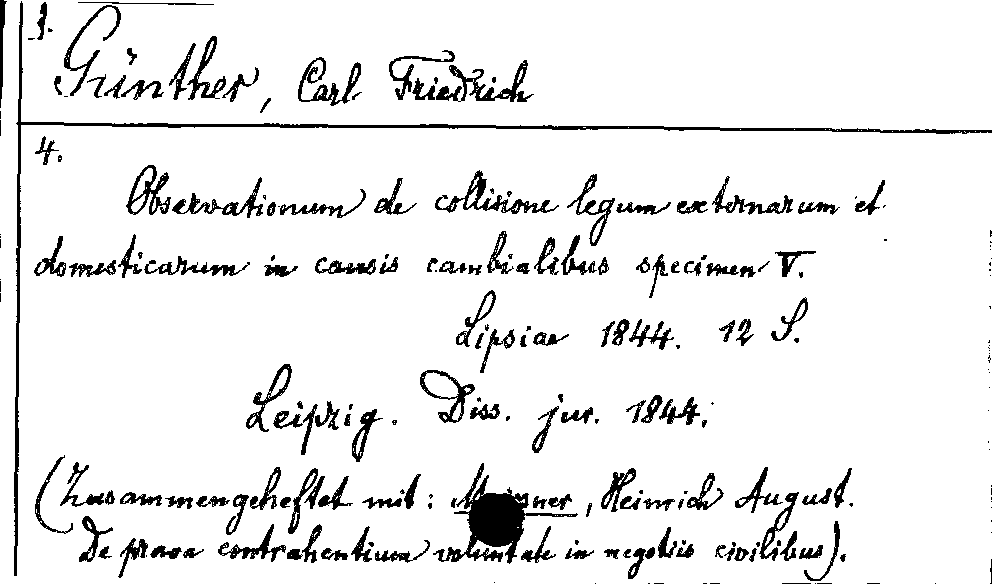 J.
Günther, Carl Friedrich
4.
Observationum de collisione legum externarum et
domesticarum in causis cambialibus specimen V.
Lipsiae 1844. 12 S.
Leipzig. Diss. jur. 1844.
(Zusammengeheftet mit: , Heinrich August.
De prava contrahentium voluntate in negotiis civilibus).